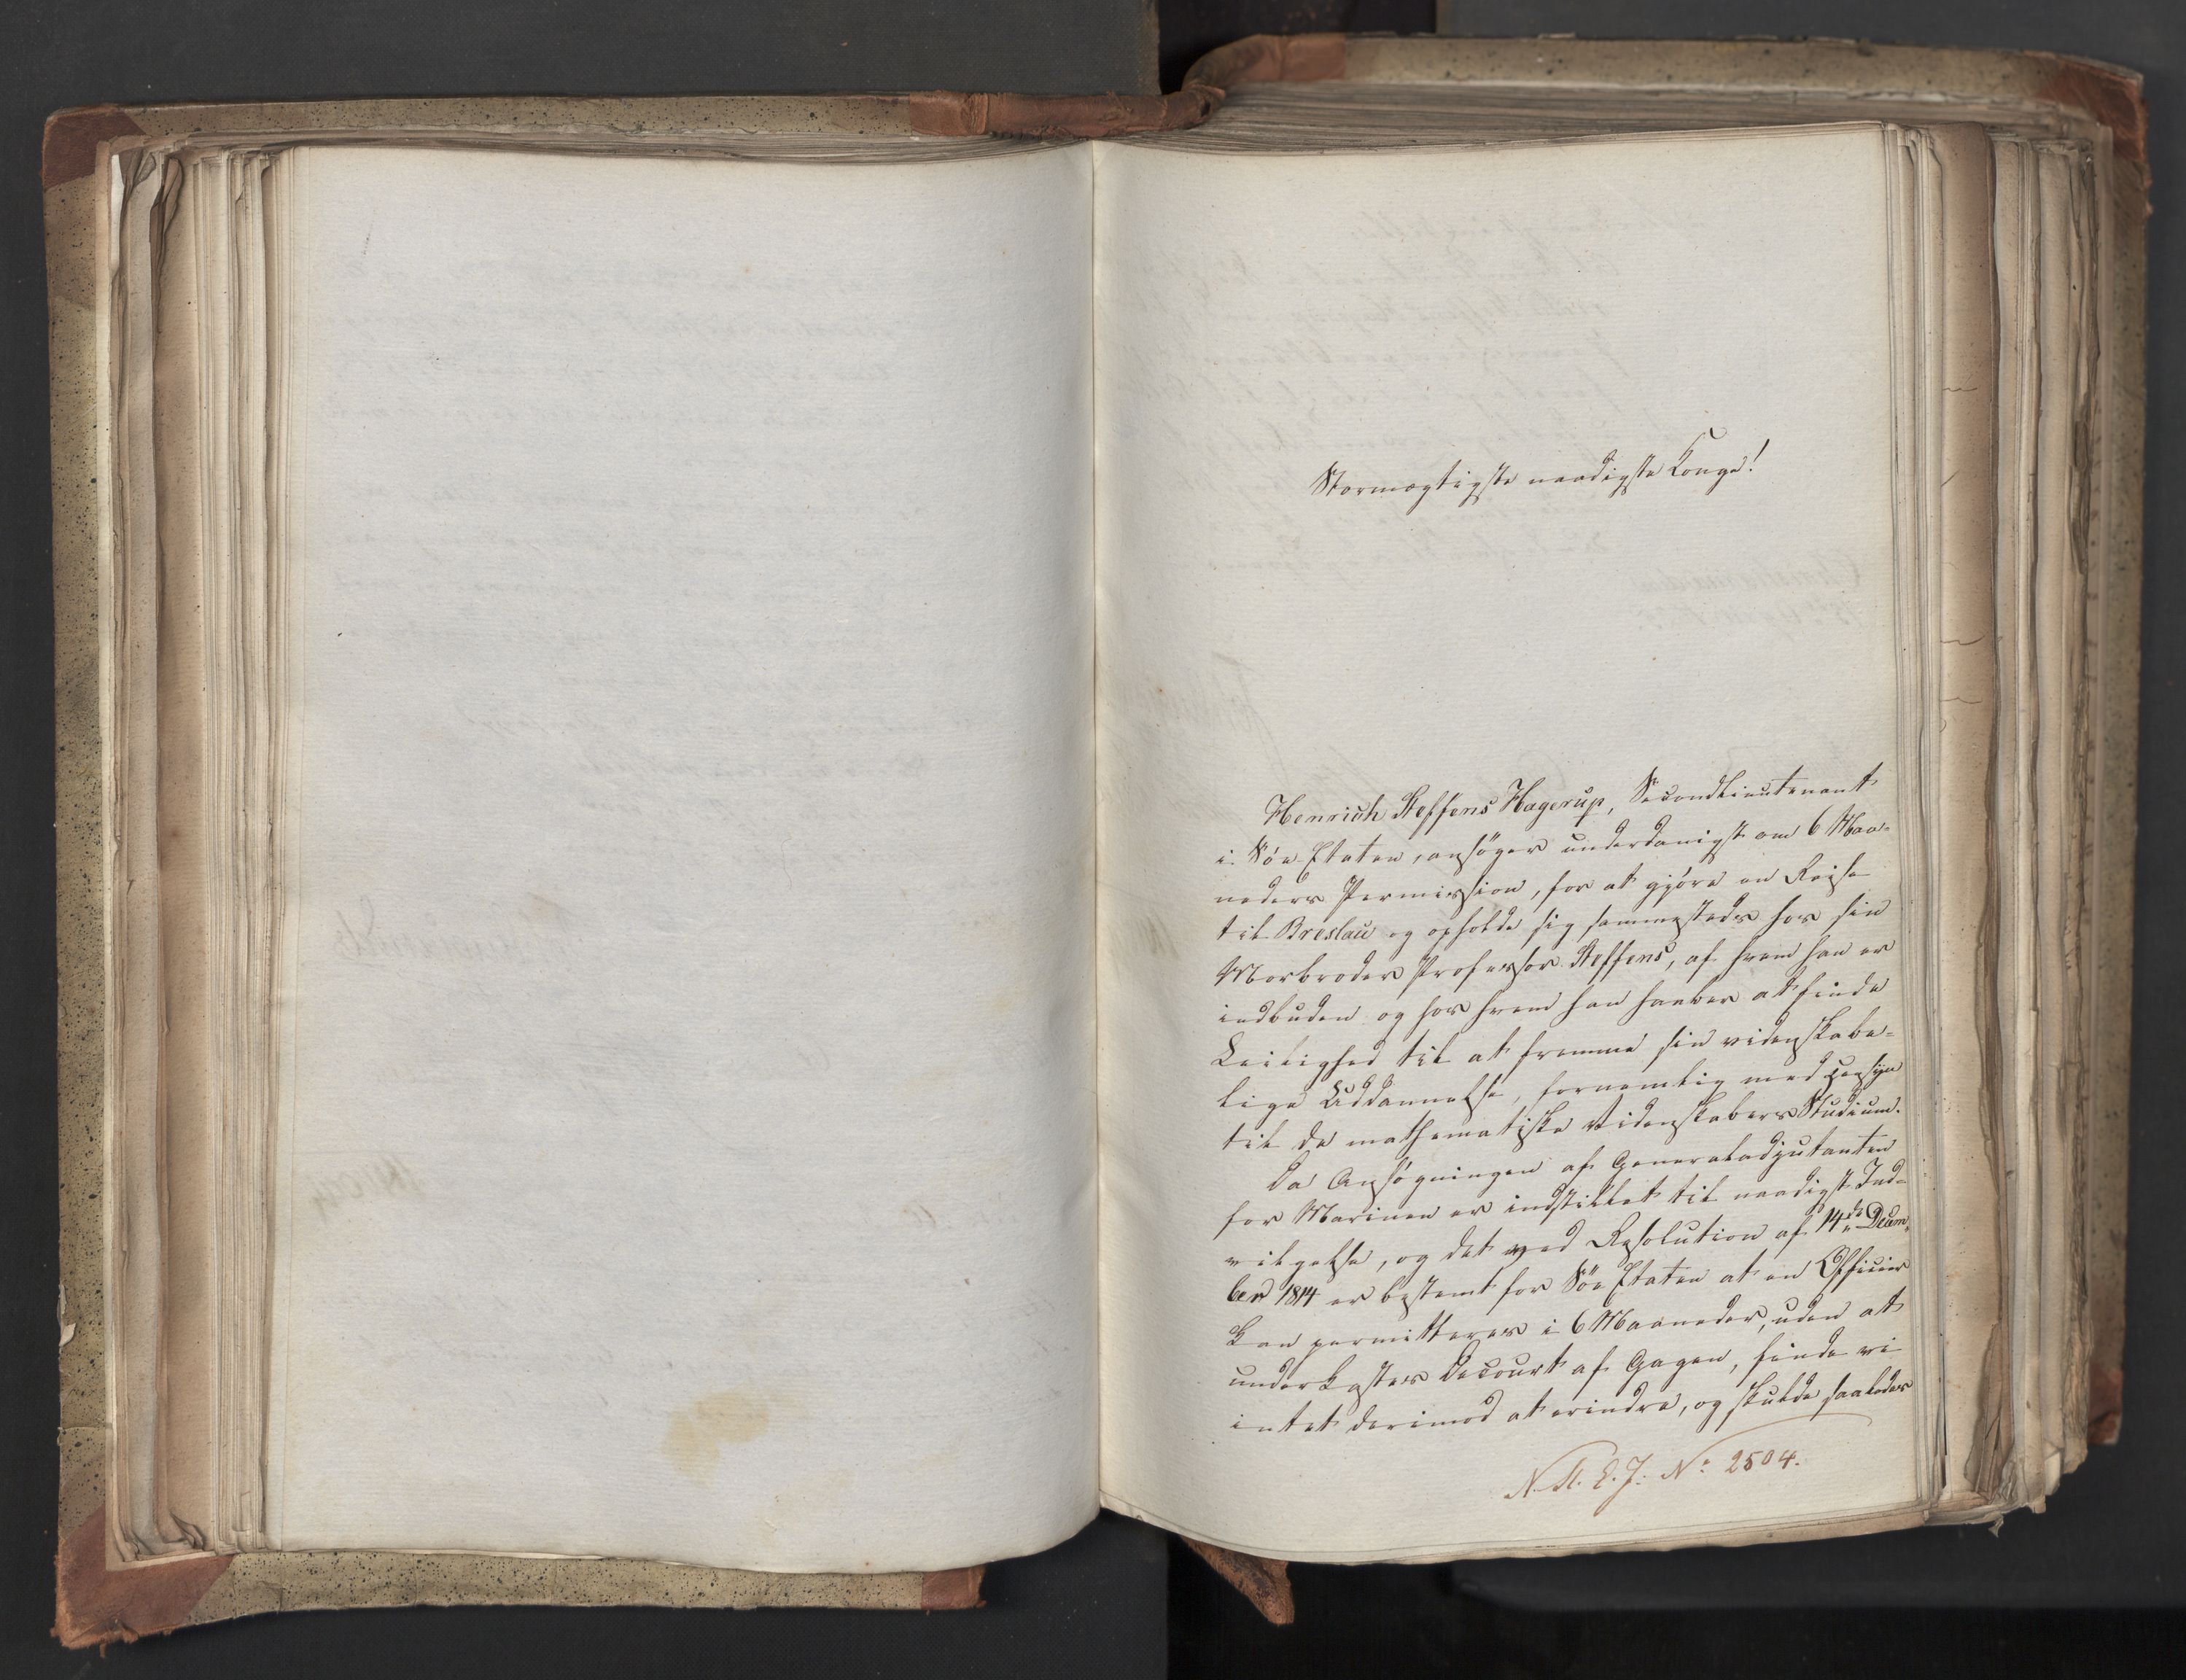 Stormægtigste naadigste Konge!
Henrich Steffens Hagerup, Secondlieutenant
i Söe-Etaten, ansöger underdanigst om 6 Maa-
neders Permission, for at gjöre en Reise
til Breslau og opholde sig sammesteds hos sin
Morbroder Professor Steffens, af hvem han er
indbuden og hos hvem han haaber at finde
Leilighed til at fremme sin videnskabe-
lige Uddannelse, fornemlig med Hensyn
til de mathematiske Videnskabers Studium.
Da Ansögningen af Generaladjutanten
for Marinen er indstillet til naadigst Ind-
vilgelse, og det ved Resolution af 14de Decem-
ber 1814 er bestemt for Söe-Etaten at en Officier
kan permitteres i 6 Maaneder, uden at
underkastes Decourt af Gagen, finde vi
intet derimod at erindre, og skulde saaledes
N. A. E. J. No 2504.